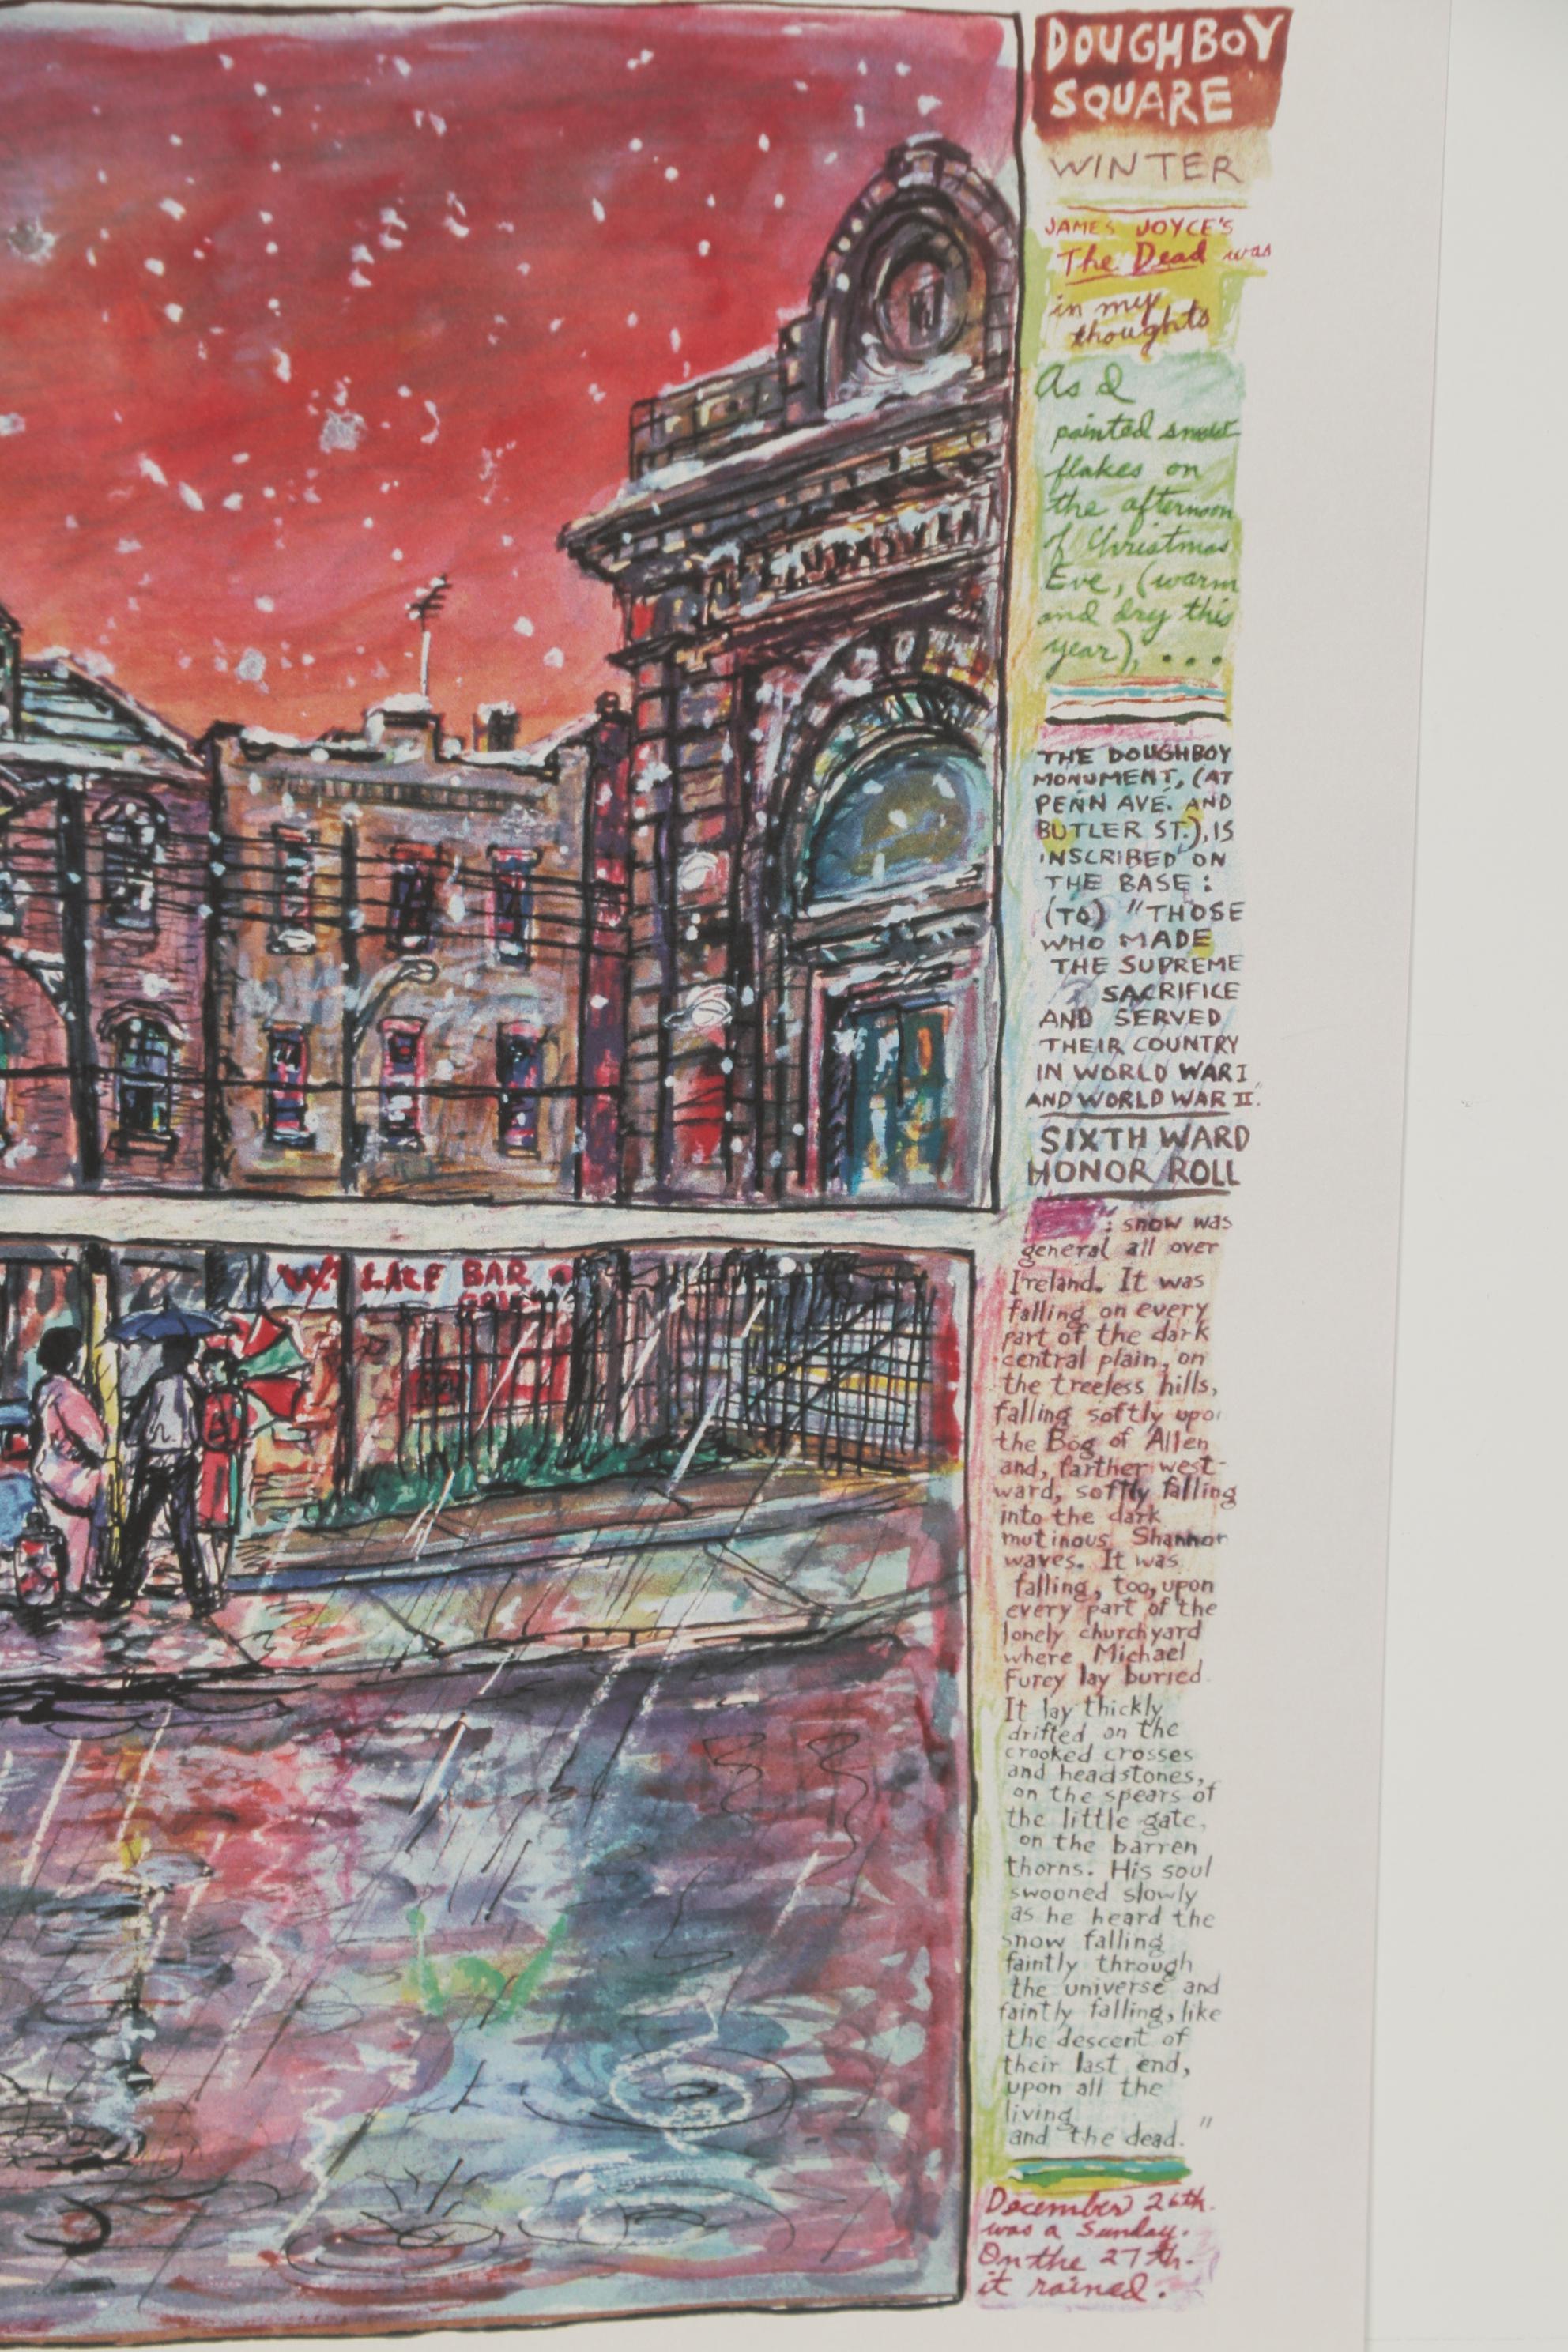 DOUGHBOY
SQUARE
WINTER
JAMES JOYCE'S
The Dead was
in my
thoughts
As I
painted snow
flakes on
the afternoon
of Christmas
Eve, (warm
and dry this
year), ...
THE DOUGHBOY
MONUMENT, (AT
PENN AVE. AND
BUTLER ST.), IS
INSCRIBED ON
THE BASE:
(TO) "THOSE
WHO MADE
THE SUPREME
SACRIFICE
AND SERVED
THEIR COUNTRY
IN WORLD WAR I
AND WORLD WAR II."
SIXTH WARD
HONOR ROLL
: snow was
general all over
Ireland. It was
falling on every
part of the dark
central plain, on
the treeless hills,
falling softly upon
the Bog of Allen
and, farther west-
ward, softly falling
into the dark
mutinous Shannon
waves. It was
falling, too, upon
every part of the
lonely churchyard
where Michael
Furey lay buried
It lay thickly
drifted on the
crooked crosses
and headstones,
on the spears of
the little gate,
on the barren
thorns. His soul
swooned slowly
as he heard the
snow falling
faintly through
the universe and
faintly falling, like
the descent of
their last end,
upon all the
living
and the dead."
December 26th.
was a Sunday.
On the 27th.
it rained.
BAR